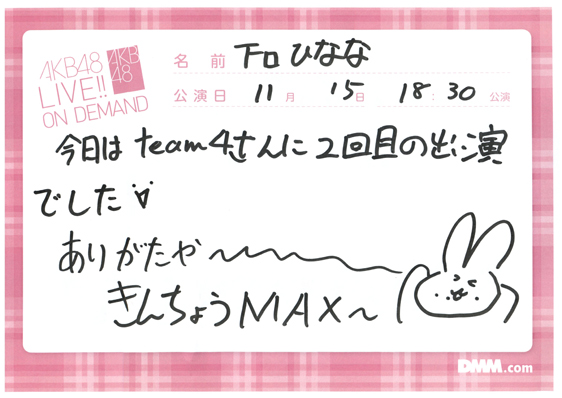 AKB48
LIVE!!
ON DEMAND
AKB
48
名前 下口ひなな
公演日 11月 15日 18:30 公演
今日は team4さんに2回目の出演
でした
ありがたや〜
きんちょうMAX〜
DMM.com